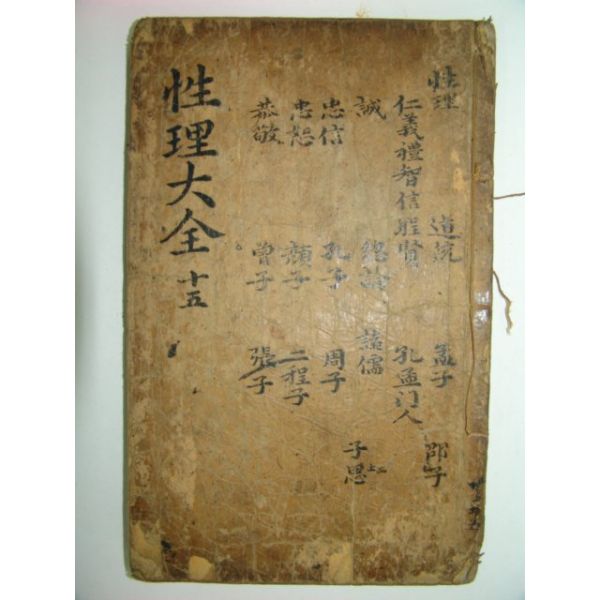 性理大全 十五
性理 道統 孟子 邵子
仁義禮智信 聖賢 孔孟门人
誠 總論 諸儒
子思
忠信 孔子 周子
忠恕 顔子 二程子
恭敬 曾子 張子